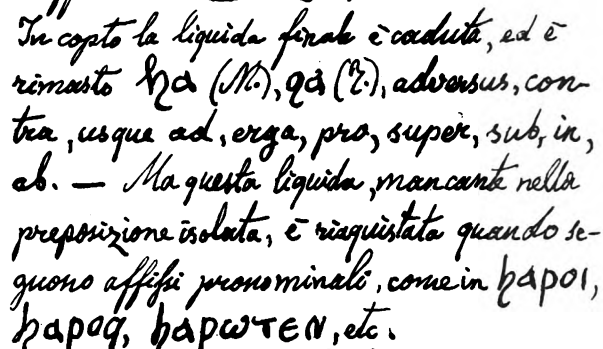 In copto la liquida finale è caduta, ed è
rimasto ϧα (M.), ϩα (T.), adversus, con-
tra, usque ad, erga, pro, super, sub, in,
ab. — Ma questa liquida, mancante nella
preposizione isolata, è riaquistata quando se-
guono affissi pronominali, come in ϧαροι,
ϧαροϥ, ϧαρωτεν, etc.